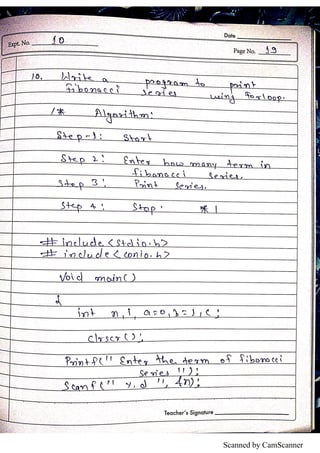 Date
Expt. No. 10
Page No. 19
10. Write a program to print
fibonacci series using forloop.
/* Algorithm:
Step-1: Start
Step 2: Enter how many term in
fibonacci series.
Step 3: Print series.
Step 4: Stop. */
# include <stdio.h>
# include <conio.h>
Void main()
{
int n, i, a=0, = 1, c;
clrscr();
Printf(" Enter the term of fibonacci
series ");
Scanf(" %d ", &n);
Teacher's Signature
Scanned by CamScanner